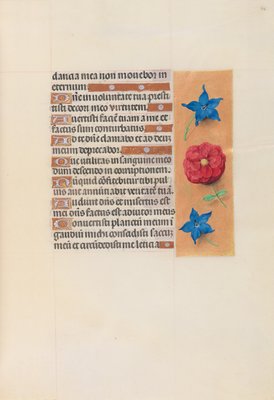 dancia mea non mouebor in
eternum
Dñe in uoluntate tua presti
tisti decori meo uirtutem
Auertisti faciē tuam a me et
factus sum conturbatus
Ad te dñe clamabo et ad deū
meum deprecabor
Que utilitas in sanguine meo
dum descendo in corruptionem
Nūquid cōfitebitur tibi pul
uis aut annūciabit ueritatē tuā
Audiuit dn̄s et misertus est
mei dn̄s factus est adiutor meus
Conuertisti planctū meum ī
gaudiū michi conscidisti saccū
meū et circūdedisti me leticia